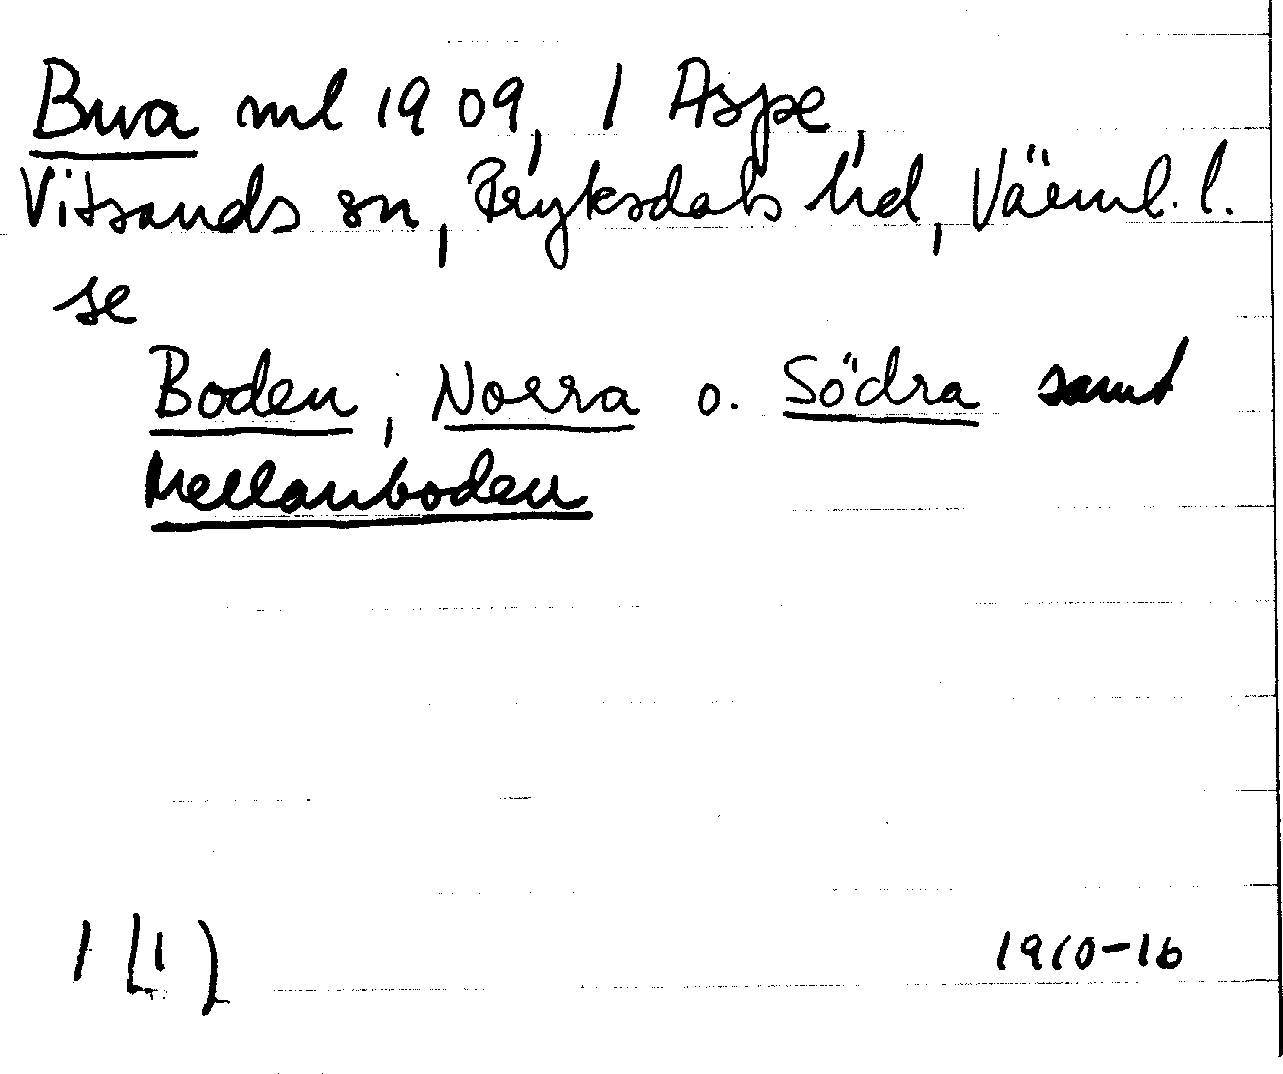 Buva ml 1909, 1 Aspe,
Vitsands sn, Fryksdals hd, Värml. l.
se
Boden, Norra o. Södra samt
Mellanboden
1 (1)
1910-16